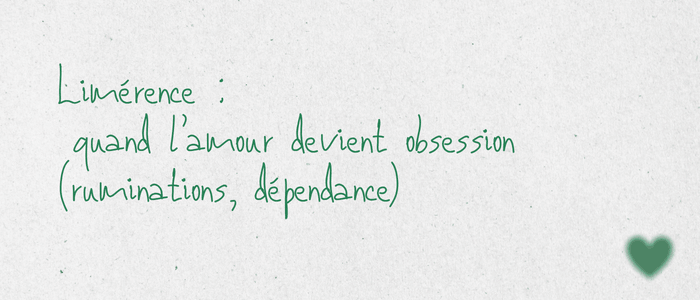 Limérence :
quand l'amour devient obsession
(ruminations, dépendance)